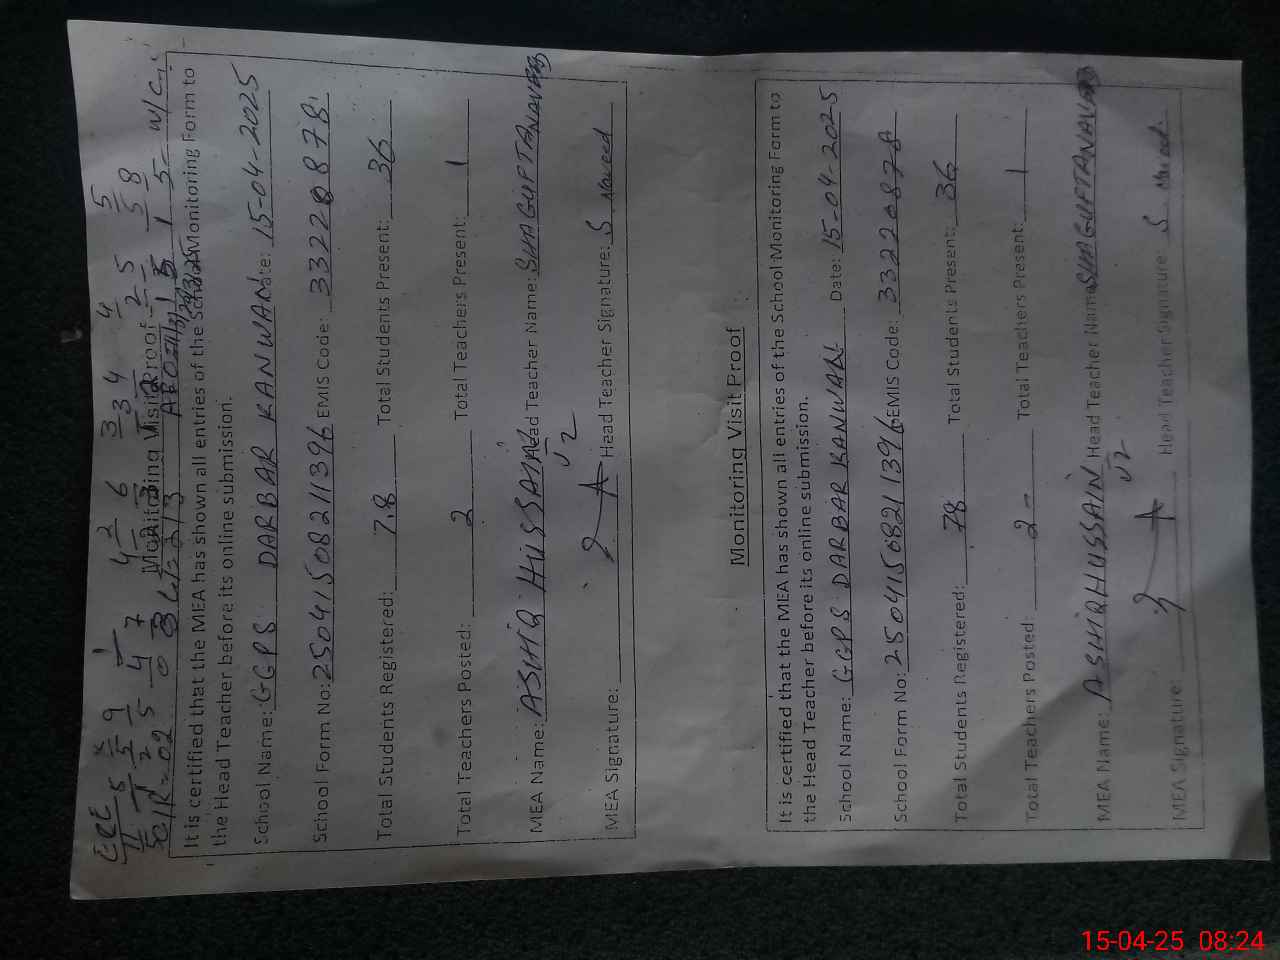 Monitoring Visit Proof
It is certified that the MEA has shown all entries of the School Monitoring Form to
the Head Teacher before its online submission.
School Name: GGPS DARBAR KANWAN Date: 15-04-2025
School Form No: 25041508211396 EMIS Code: 33220878
Total Students Registered: 78 Total Students Present: 36
Total Teachers Posted: 2 Total Teachers Present: 1
MEA Name: ASHIQ HUSSAIN Head Teacher Name: SHAGUFTA NAVEED
MEA Signature: Head Teacher Signature: S Naveed
Monitoring Visit Proof
It is certified that the MEA has shown all entries of the School Monitoring Form to
the Head Teacher before its online submission.
School Name: GGPS DARBAR KANWAN Date: 15-04-2025
School Form No: 25041508211396 EMIS Code: 33220878
Total Students Registered: 78 Total Students Present: 36
Total Teachers Posted: 2 Total Teachers Present: 1
MEA Name: ASHIQ HUSSAIN Head Teacher Name: SHAGUFTA NAVEED
MEA Signature: Head Teacher Signature: S Naveed
15-04-25 08:24